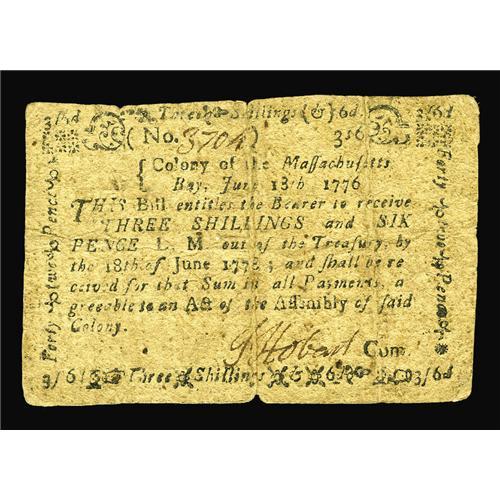 3/6d Three Shillings (&) 6d 3/6d
(No. 3704) 3s6
Colony of the Massachusetts
Bay, June 18th 1776
THIS Bill entitles the Bearer to receive
THREE SHILLINGS and SIX
PENCE L. M out of the Treasury, by
the 18th of June 1778; and shall be re
ceived for that Sum in all Payments, a
greeable to an Act of the Assembly of said
Colony.
J Hobart Com.
3/6 Three Shillings & 6 3/6d
Forty two Pence
Forty two Pence